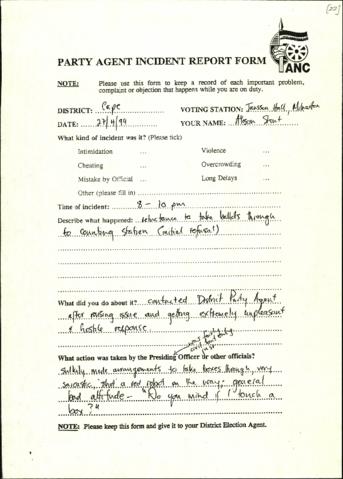 [22]
PARTY AGENT INCIDENT REPORT FORM
ANC
NOTE: Please use this form to keep a record of each important problem, complaint or objection that happens while you are on duty.
DISTRICT: Cape VOTING STATION: Hall,
DATE: 27/4/94 YOUR NAME: Alison Stent
What kind of incident was it? (Please tick)
Intimidation ... Violence ...
Cheating ... Overcrowding ...
Mistake by Official ... Long Delays ...
Other (please fill in)
Time of incident: 8 - 10 pm
Describe what happened: reluctance to take ballots through
to counting station (initial refusal)
What did you do about it? contacted District Party Agent
after raising issue and getting extremely unpleasant
& hostile response
What action was taken by the Presiding Officer or other officials?
Sulkily made arrangements to take boxes through, very
sarcastic, shot a red robot on the way; general
bad attitude - "Do you mind if I touch a
box?"
NOTE: Please keep this form and give it to your District Election Agent.